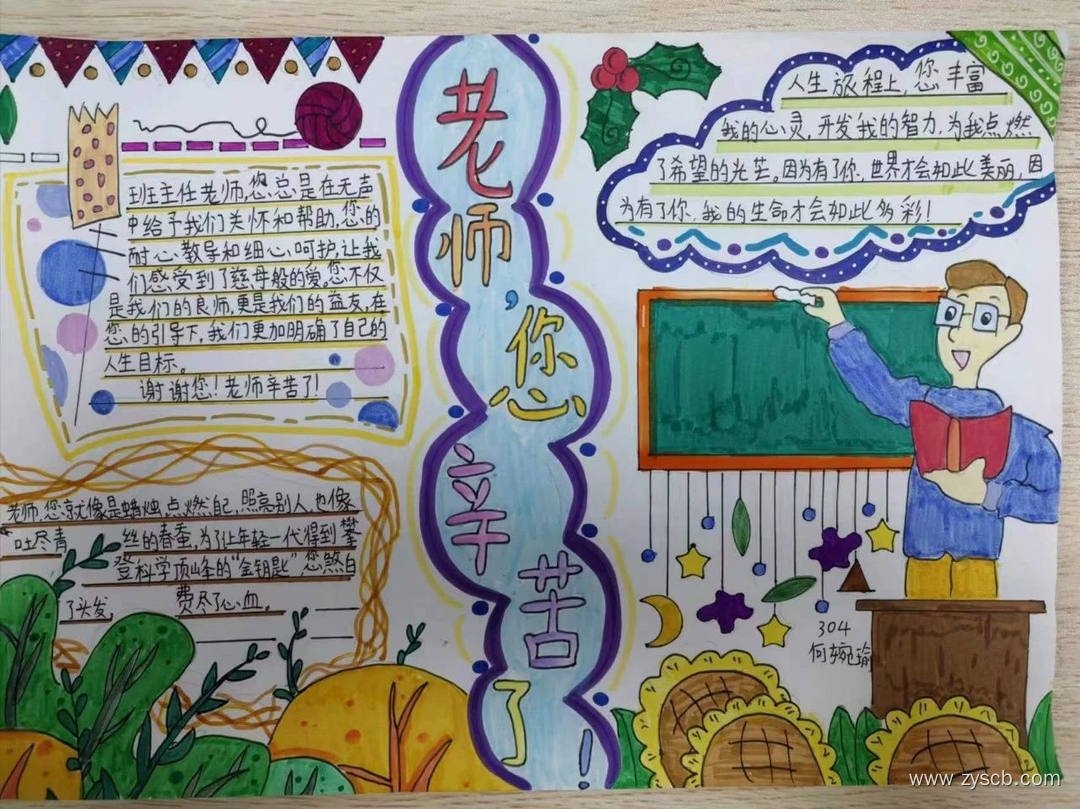 老师,您辛苦了!
班主任老师,您总是在无声
中给予我们关怀和帮助,您的
耐心、教导和细心、呵护,让我
们感受到了慈母般的爱,您不仅
是我们的良师,更是我们的益友,在
您的引导下,我们更加明确了自己的
人生目标。
谢谢您!老师辛苦了!
老师,您就像是蜡烛,点燃自己,照亮别人,也像
吐尽青丝的春蚕,为了让年轻一代得到攀
登科学顶峰的“金钥匙”,您熬白
了头发,费尽了心血。
人生旅程上,您丰富
我的心灵,开发我的智力,为我点燃
了希望的光芒。因为有了你,世界才会如此美丽,因
为有了你,我的生命才会如此多彩!
304
何婉瑜
www.zyscb.com